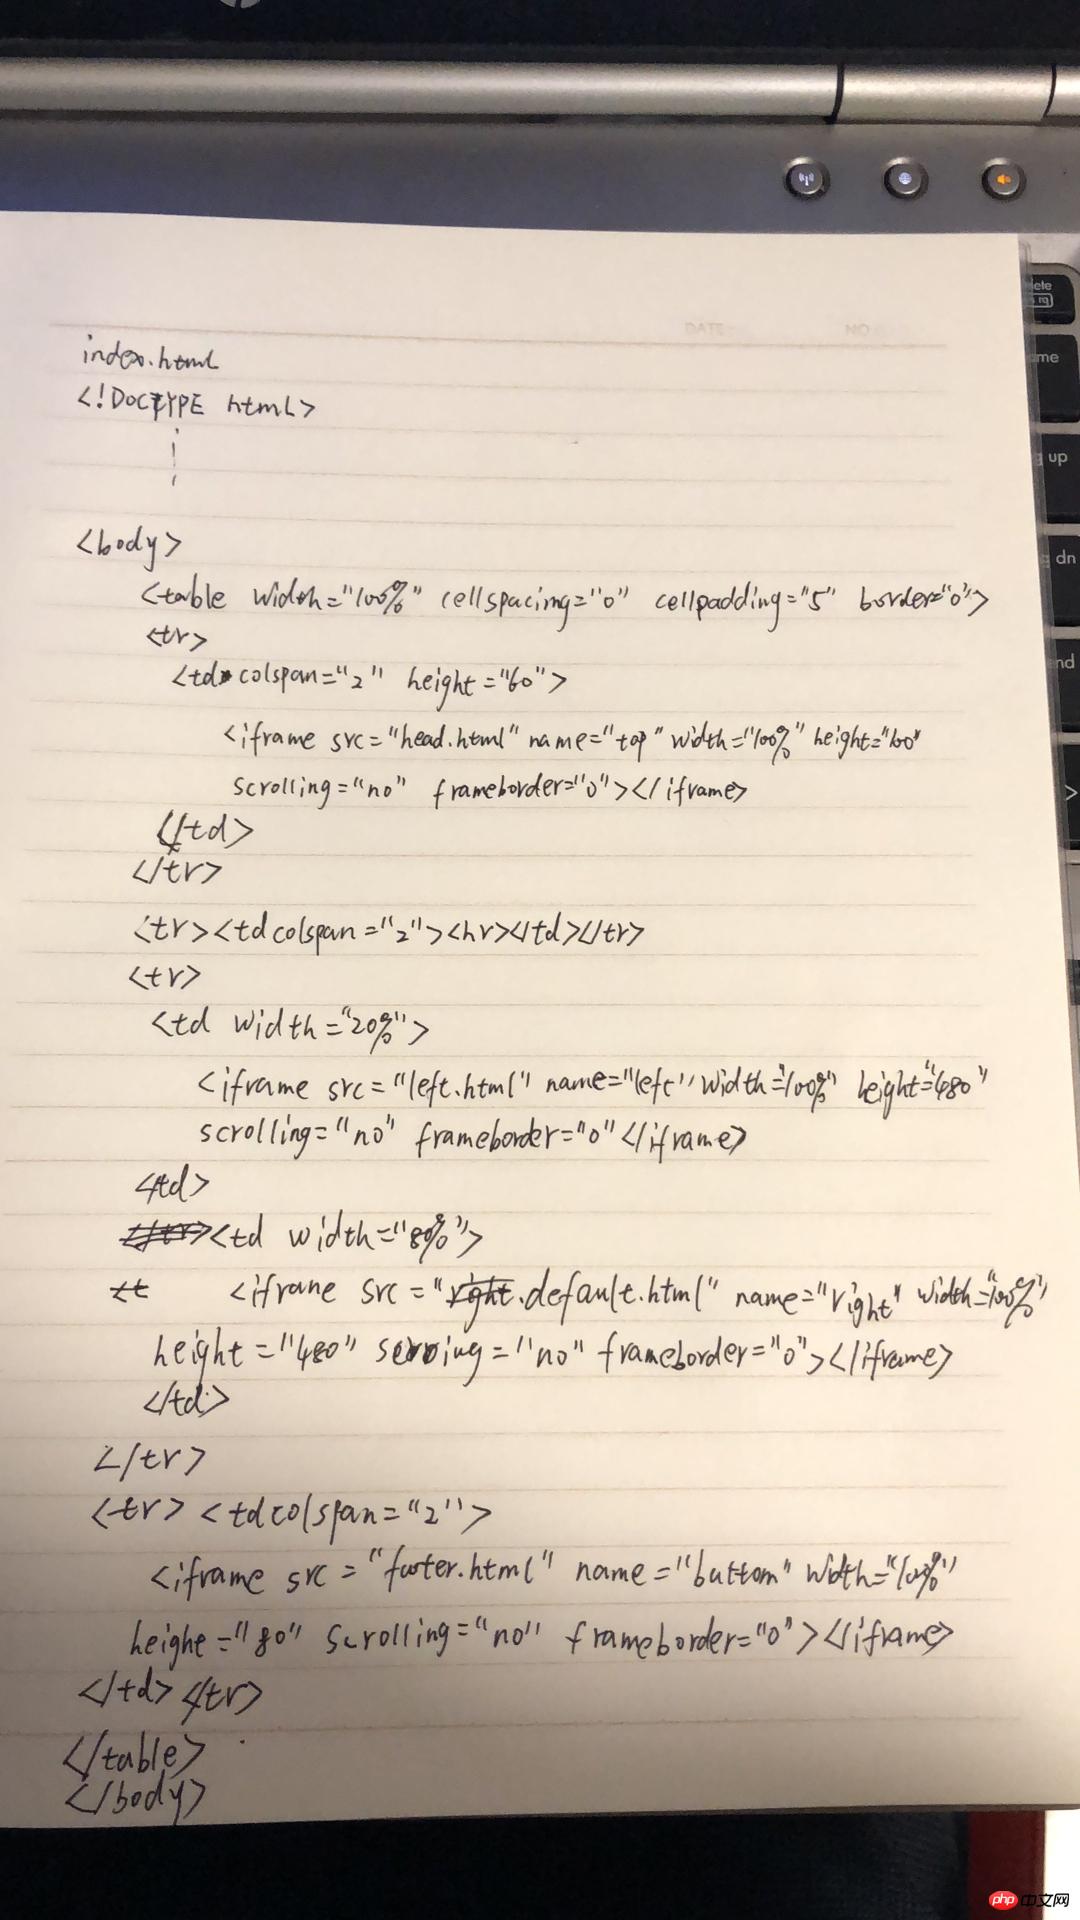 DATE NO
index.html
<!DOCTYPE html>
<body>
<table width="100%" cellspacing="0" cellpadding="5" border="0">
<tr>
<td colspan="2" height="60">
<iframe src="head.html" name="top" width="100%" height="60"
scrolling="no" frameborder="0"></iframe>
</td>
</tr>
<tr><td colspan="2"><hr></td></tr>
<tr>
<td width="20%">
<iframe src="left.html" name="left" width="100%" height="480"
scrolling="no" frameborder="0"</iframe>
</td>
<td width="80%">
<iframe src="default.html" name="right" width="100%"
height="480" scroing="no" frameborder="0"></iframe>
</td>
</tr>
<tr><td colspan="2">
<iframe src="footer.html" name="buttom" width="100%"
height="80" scrolling="no" frameborder="0"></iframe>
</td></tr>
</table>
</body>
up
dn
php中文网